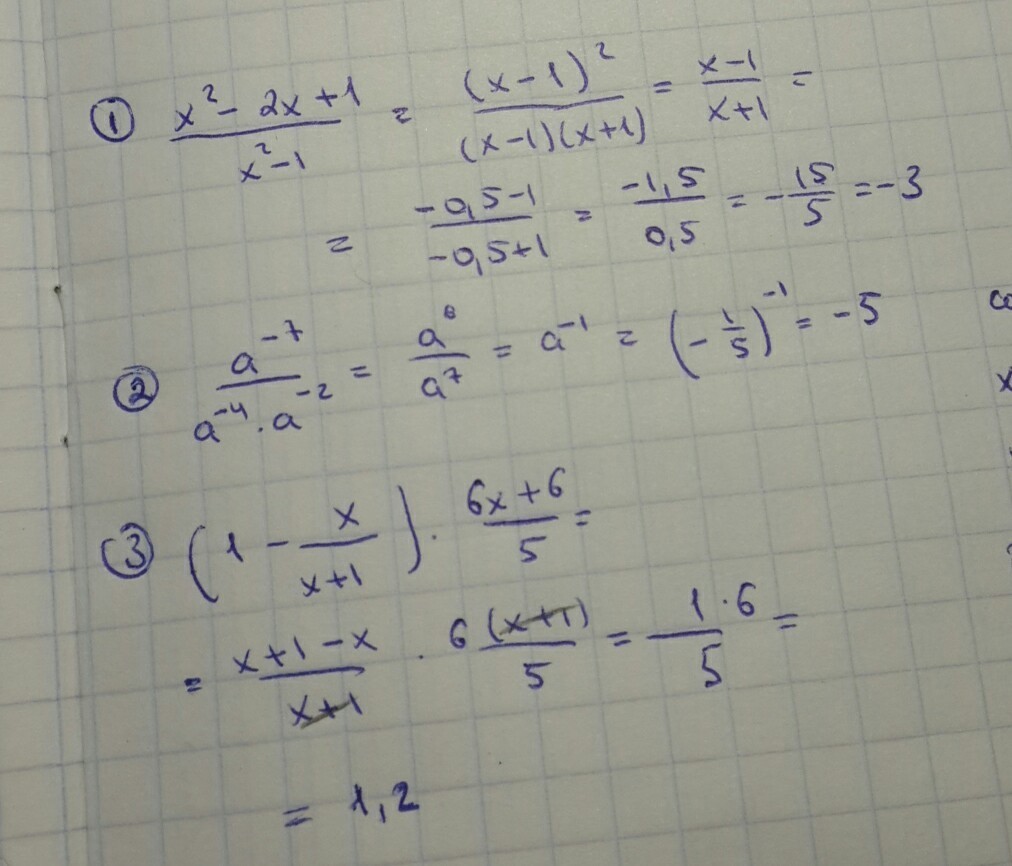 ① (x² - 2x + 1)/(x² - 1) = (x - 1)²/((x - 1)(x + 1)) = (x - 1)/(x + 1) =
= (-0,5 - 1)/(-0,5 + 1) = (-1,5)/(0,5) = -15/5 = -3
② a⁻⁷/(a⁻⁴ · a⁻²) = a⁶/a⁷ = a⁻¹ = (-1/5)⁻¹ = -5
③ (1 - x/(x + 1)) · (6x + 6)/5 =
= (x + 1 - x)/(x + 1) · 6(x + 1)/5 = (1 · 6)/5 =
= 1,2